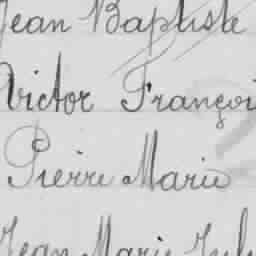 Jean Baptiste
Victor Françoi
Pierre Marie
Jean Marie Jul